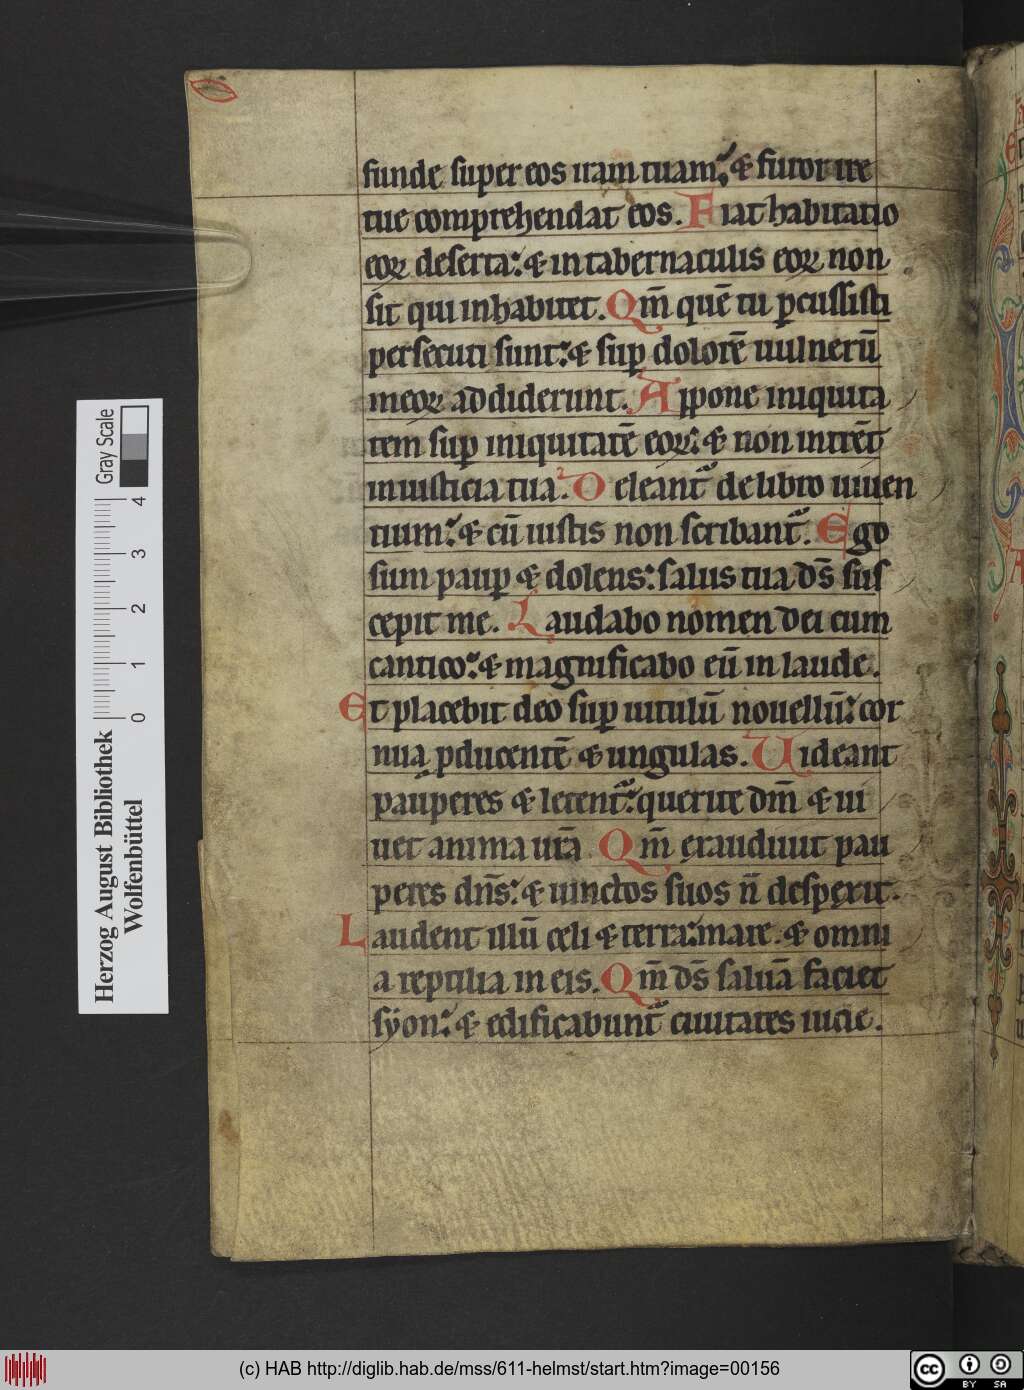 funde super eos iram tuam: & furor ire
tue comprehendat eos. Fiat habitatio
eoꝝ deserta: & in tabernaculis eoꝝ non
sit qui inhabitet. Qm̄ quē tu ꝑcussisti
persecuti sunt: & suꝑ dolorē uulnerū
meoꝝ addiderunt. Appone iniquita
tem suꝑ iniquitatē eoꝝ: & non intrēt
in iusticia tua. Deleant᷑ de libro uiuen
tium: & cū iustis non scribant᷑. Ego
sum pauꝑ & dolens: salus tua ds̄ sus
cepit me. Laudabo nomen dei cum
cantico: & magnificabo eū in laude.
Et placebit deo suꝑ uitulū nouellū: cor
nua ꝓducentē & ungulas. Uideant
pauperes & letent᷑: querite dm̄ & ui
uet anima ur̄a Qm̄ exaudiuit pau
peres dn̄s: & uinctos suos n̄ despexit.
Laudent illū celi & terra: mare. & omni
a reptilia in eis. Qm̄ ds̄ saluā faciet
syon: & edificabunt᷑ ciuitates iucie.
Herzog August Bibliothek
Wolfenbüttel
0 1 2 3 4
Gray Scale
(c) HAB http://diglib.hab.de/mss/611-helmst/start.htm?image=00156
cc BY SA